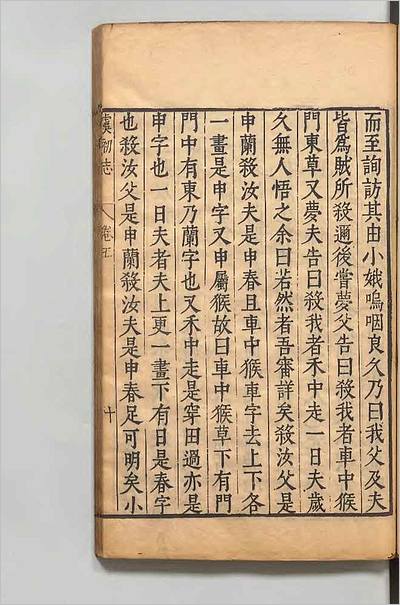 而至詢訪其由小娥嗚咽良久乃曰我父及夫
皆爲賊所殺邇後嘗夢父告曰殺我者車中猴
門東草又夢夫告曰殺我者禾中走一日夫歲
久無人悟之余曰若然者吾審詳矣殺汝父是
申蘭殺汝夫是申春且車中猴車字去上下各
一畫是申字又申屬猴故曰車中猴草下有門
門中有東乃蘭字也又禾中走是穿田過亦是
申字也一日夫者夫上更一畫下有日是春字
也殺汝父是申蘭殺汝夫是申春足可明矣小
虞初志 卷五 十